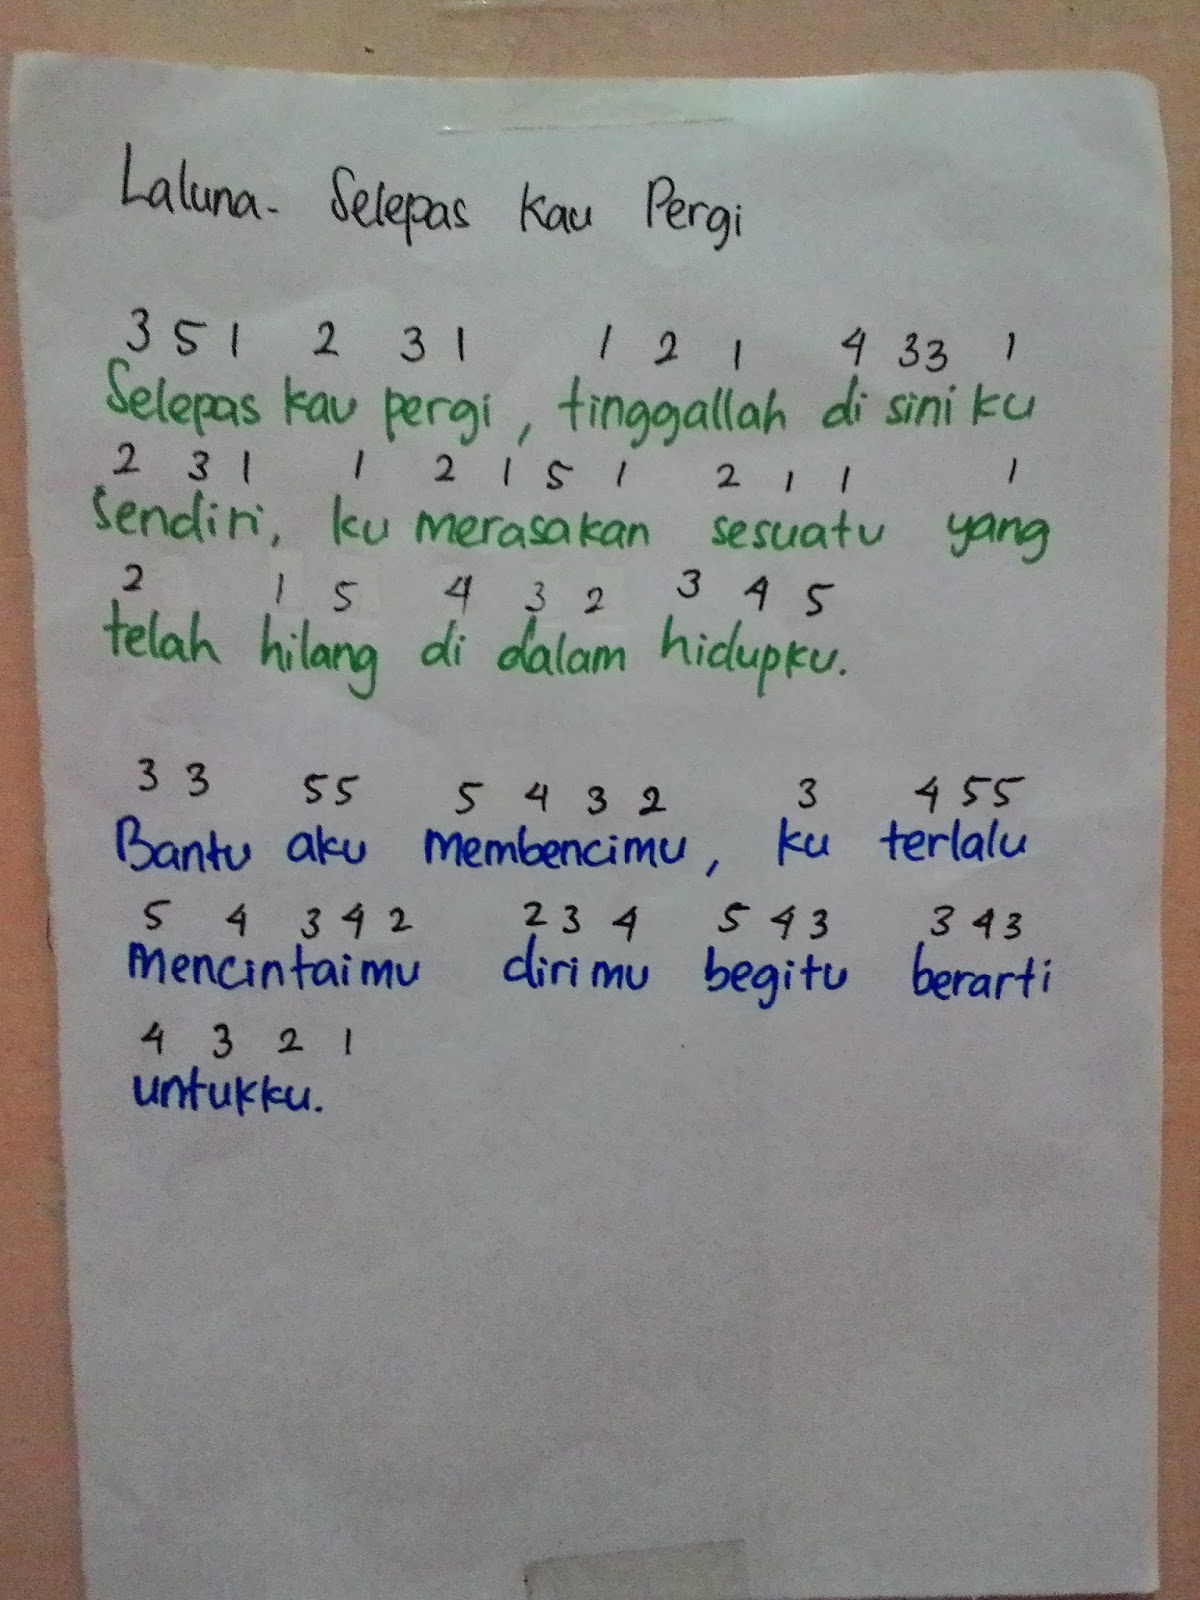 Laluna- Selepas Kau Pergi
3 5 1 2 3 1 1 2 1 4 33 1
Selepas kau pergi, tinggallah di sini ku
2 3 1 1 2 1 5 1 2 1 1 1
sendiri, ku merasakan sesuatu yang
2 1 5 4 3 2 3 4 5
telah hilang di dalam hidupku.
3 3 55 5 4 3 2 3 4 55
Bantu aku membencimu, ku terlalu
5 4 3 4 2 2 3 4 5 4 3 3 4 3
mencintaimu dirimu begitu berarti
4 3 2 1
untukku.